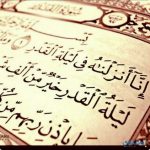 إِنَّا أَنزَلْنَٰهُ فِى لَيْلَةِ ٱلْقَدْرِ
لَيْلَةُ ٱلْقَدْرِ خَيْرٌ مِّنْ أَلْفِ
بِإِذْنِ رَبِّهِم مِّن